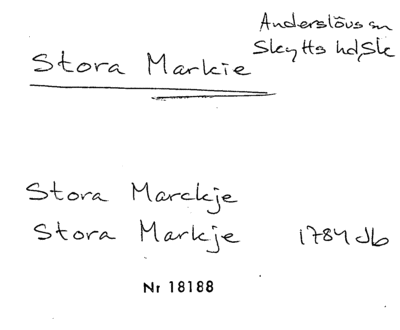 Anderslövs sn
Skytts hd, Sk
Stora Markie
Stora Marckje
Stora Markje 1784 Jb
Nr 18188